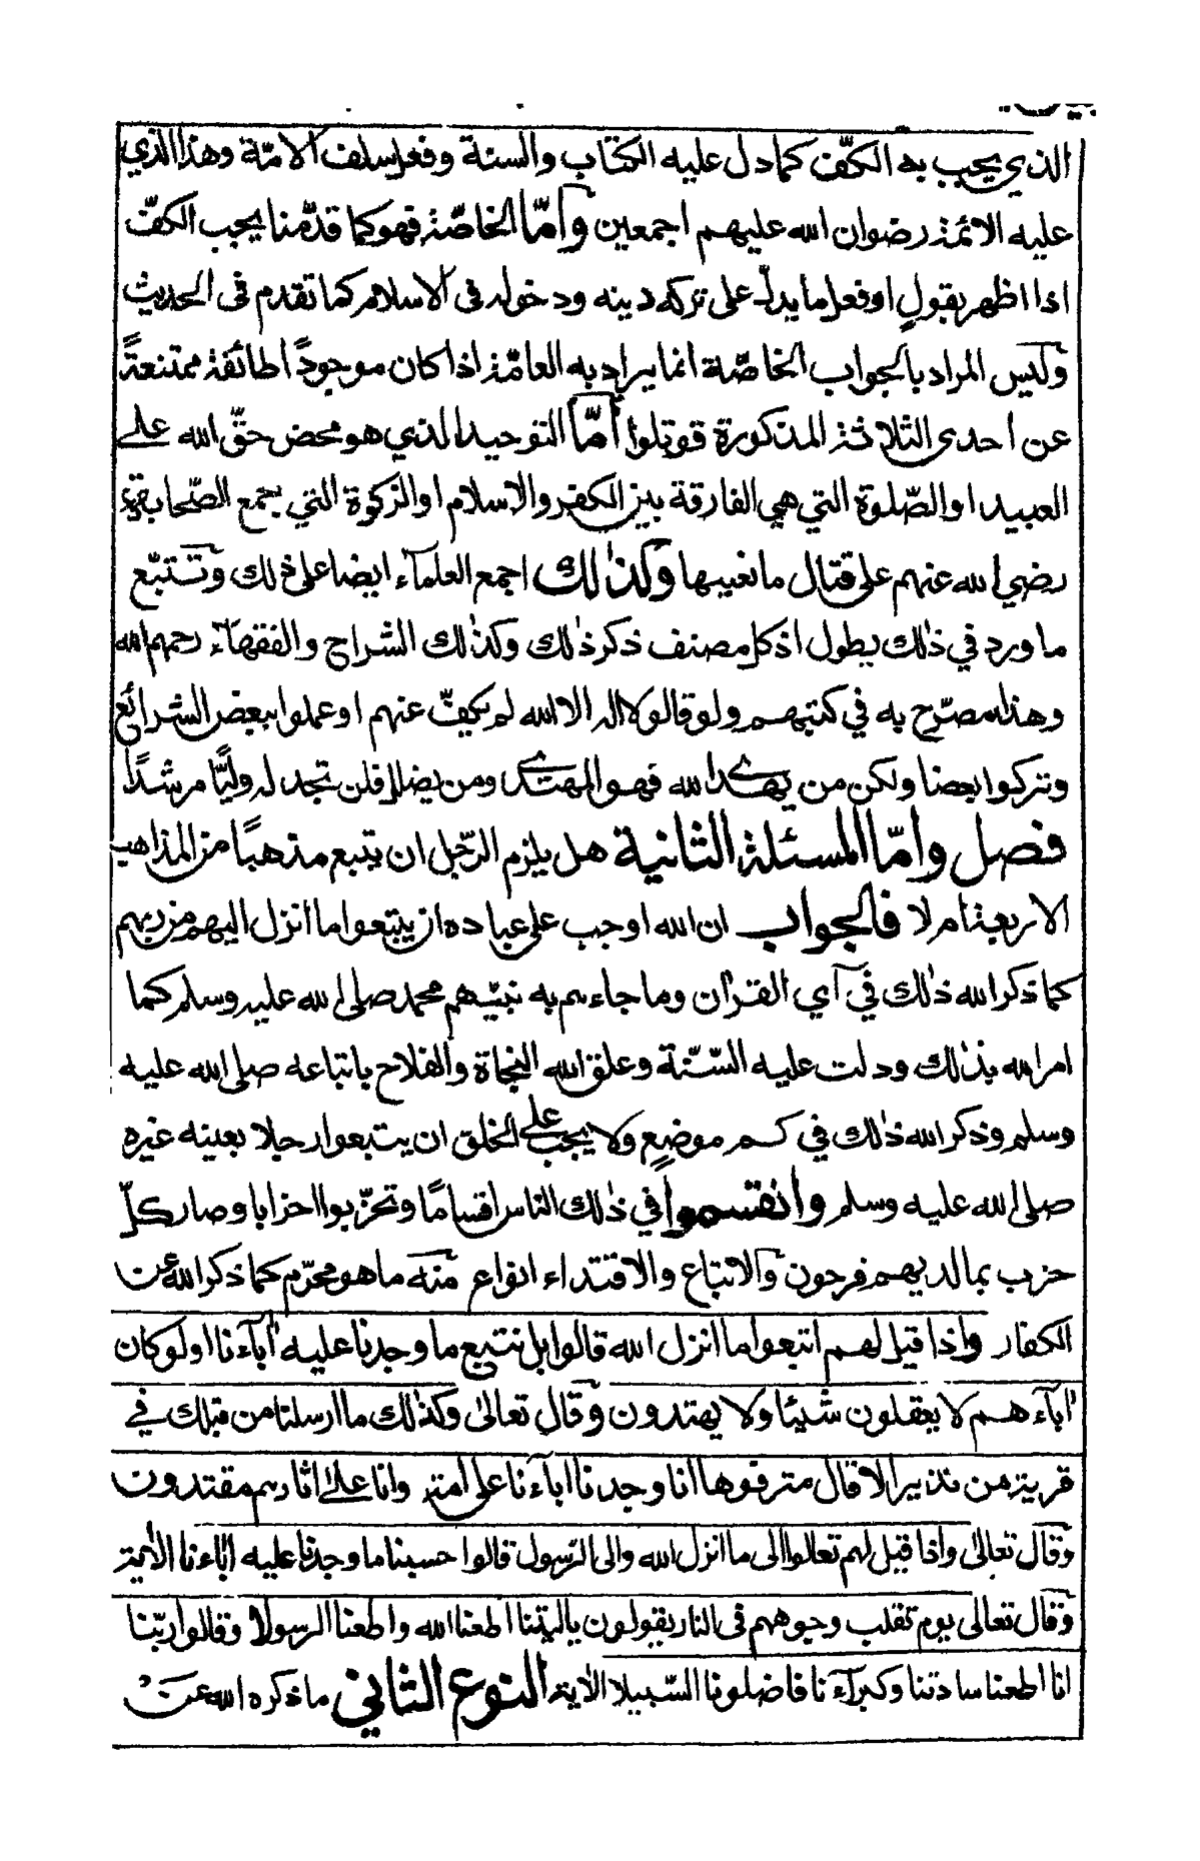 الذي يجب به الكفّ كما دل عليه الكتاب والسنة وفعل سلف الامّة وهذا الذي
عليه الائمة رضوان الله عليهم اجمعين وامّا الخاصّة فهو كما قدّمنا يجب الكفّ
اذا اظهر بقولٍ او فعل ما يدلّ على تركه دينه ودخوله فى الاسلام كما تقدم فى الحديث
وليس المراد بالجواب الخاصّة انما يراد به العامّة اذا كان موجودًا طائفة ممتنعةً
عن احدى الثلاثة المذكورة قوتلوا امّا التوحيد الذي هو محض حقّ الله على
العبيد او الصّلوة التي هي الفارقة بين الكفر والاسلام او الزكوة التي بجمع الصّحابة
رضي الله عنهم على قتال مانعيها وكذلك اجمع العلمآء ايضا على ذلك وتتبّع
ما ورد في ذلك يطول اذ كل مصنف ذكر ذلك وكذلك الشراح والفقهآء رحمهم الله
وهذا مصرّح به في كتبهم ولو قالوا لا اله الا الله لم يكفّ عنهم او عملوا ببعض الشرائع
وتركوا بعضا ولكن من يهدے الله فهو المهتدے ومن يضلل فلن تجد له وليًّا مرشدًا
فصل وامّا المسئلة الثانية هل يلزم الرّجل ان يتبع مذهبًا من المذاهب
الاربعة ام لا فالجواب ان الله اوجب على عباده ان يتبعوا ما انزل اليهم من ربهم
كما ذكر الله ذلك في آي القرآن وما جاءهم به نبيّهم محمد صلى الله عليه وسلم كما
امر الله بذلك ودلت عليه السّنّة وعلق الله النجاة والفلاح باتباعه صلى الله عليه
وسلم وذكر الله ذلك في كم موضعٍ ولا يجب على الخلق ان يتبعوا رجلا بعينه غيره
صلى الله عليه وسلم وانقسموا في ذلك الناس اقسامًا وتحزّبوا احزابا وصار كلّ
حزب بما لديهم فرحون والاتباع والاقتداء انواع منه ما هو محرّم كما ذكر الله عن
الكفار واذا قيل لهم اتبعوا ما انزل الله قالوا بل نتبع ما وجدنا عليه ابآءنا اولو كان
ابآءهم لا يعقلون شيئا ولا يهتدون وقال تعالى وكذلك ما ارسلنا من قبلك في
قرية من نذير الا قال مترفوها انا وجدنا ابآءنا على امة وانا على اثارهم مقتدون
وقال تعالى واذا قيل لهم تعالوا الى ما انزل الله والى الرّسول قالوا حسبنا ما وجدنا عليه اباءنا الآية
وقال تعالى يوم تقلب وجوههم فى النار يقولون ياليتنا اطعنا الله واطعنا الرسولا وقالوا ربّنا
انا اطعنا سادتنا وكبرآءنا فاضلونا السّبيلا الآية النوع الثاني ما ذكره الله عن